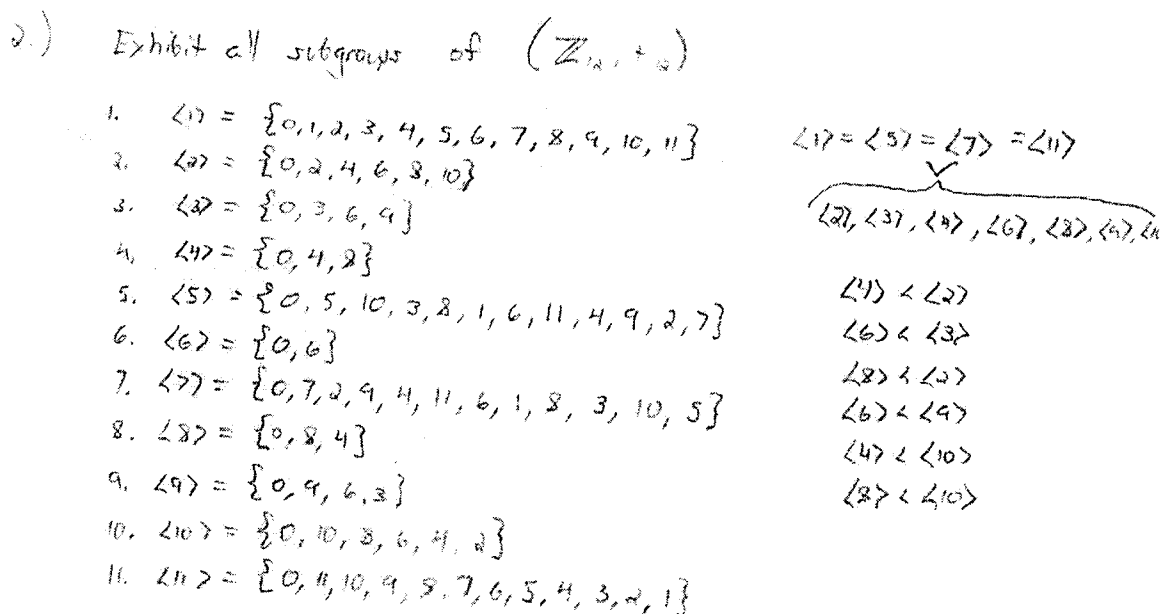 2.) Exhibit all subgroups of (ℤ₁₂, +₁₂)
1. <1> = {0,1,2,3,4,5,6,7,8,9,10,11}
2. <2> = {0,2,4,6,8,10}
3. <3> = {0,3,6,9}
4. <4> = {0,4,8}
5. <5> = {0,5,10,3,8,1,6,11,4,9,2,7}
6. <6> = {0,6}
7. <7> = {0,7,2,9,4,11,6,1,8,3,10,5}
8. <8> = {0,8,4}
9. <9> = {0,9,6,3}
10. <10> = {0,10,8,6,4,2}
11. <11> = {0,11,10,9,8,7,6,5,4,3,2,1}
<1> = <5> = <7> = <11>
<2>, <3>, <4>, <6>, <8>, <9>,
<4> < <2>
<6> < <3>
<8> < <2>
<6> < <9>
<4> < <10>
<8> < <10>